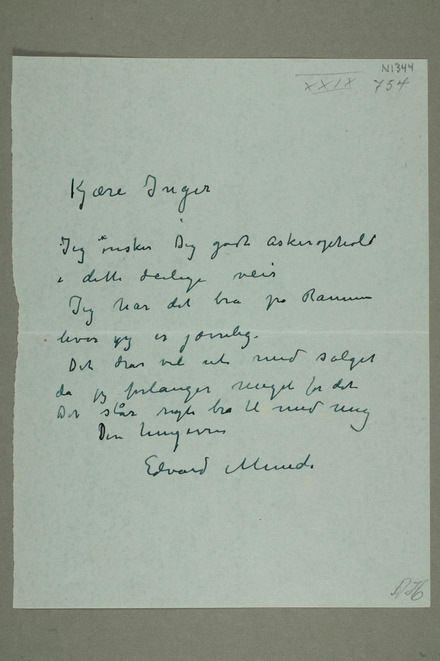 N1344
XXIX 754
Kjære Inger
Jeg ønsker Dig godt Askerophold
i dette deilige veir
Jeg har det bra på Ramme
hvor jeg er jævnlig.
Det drar vel ut med salget
da jeg forlanger meget for det
Det står nogså bra til med mig
Din hengivne
Edvard Munch